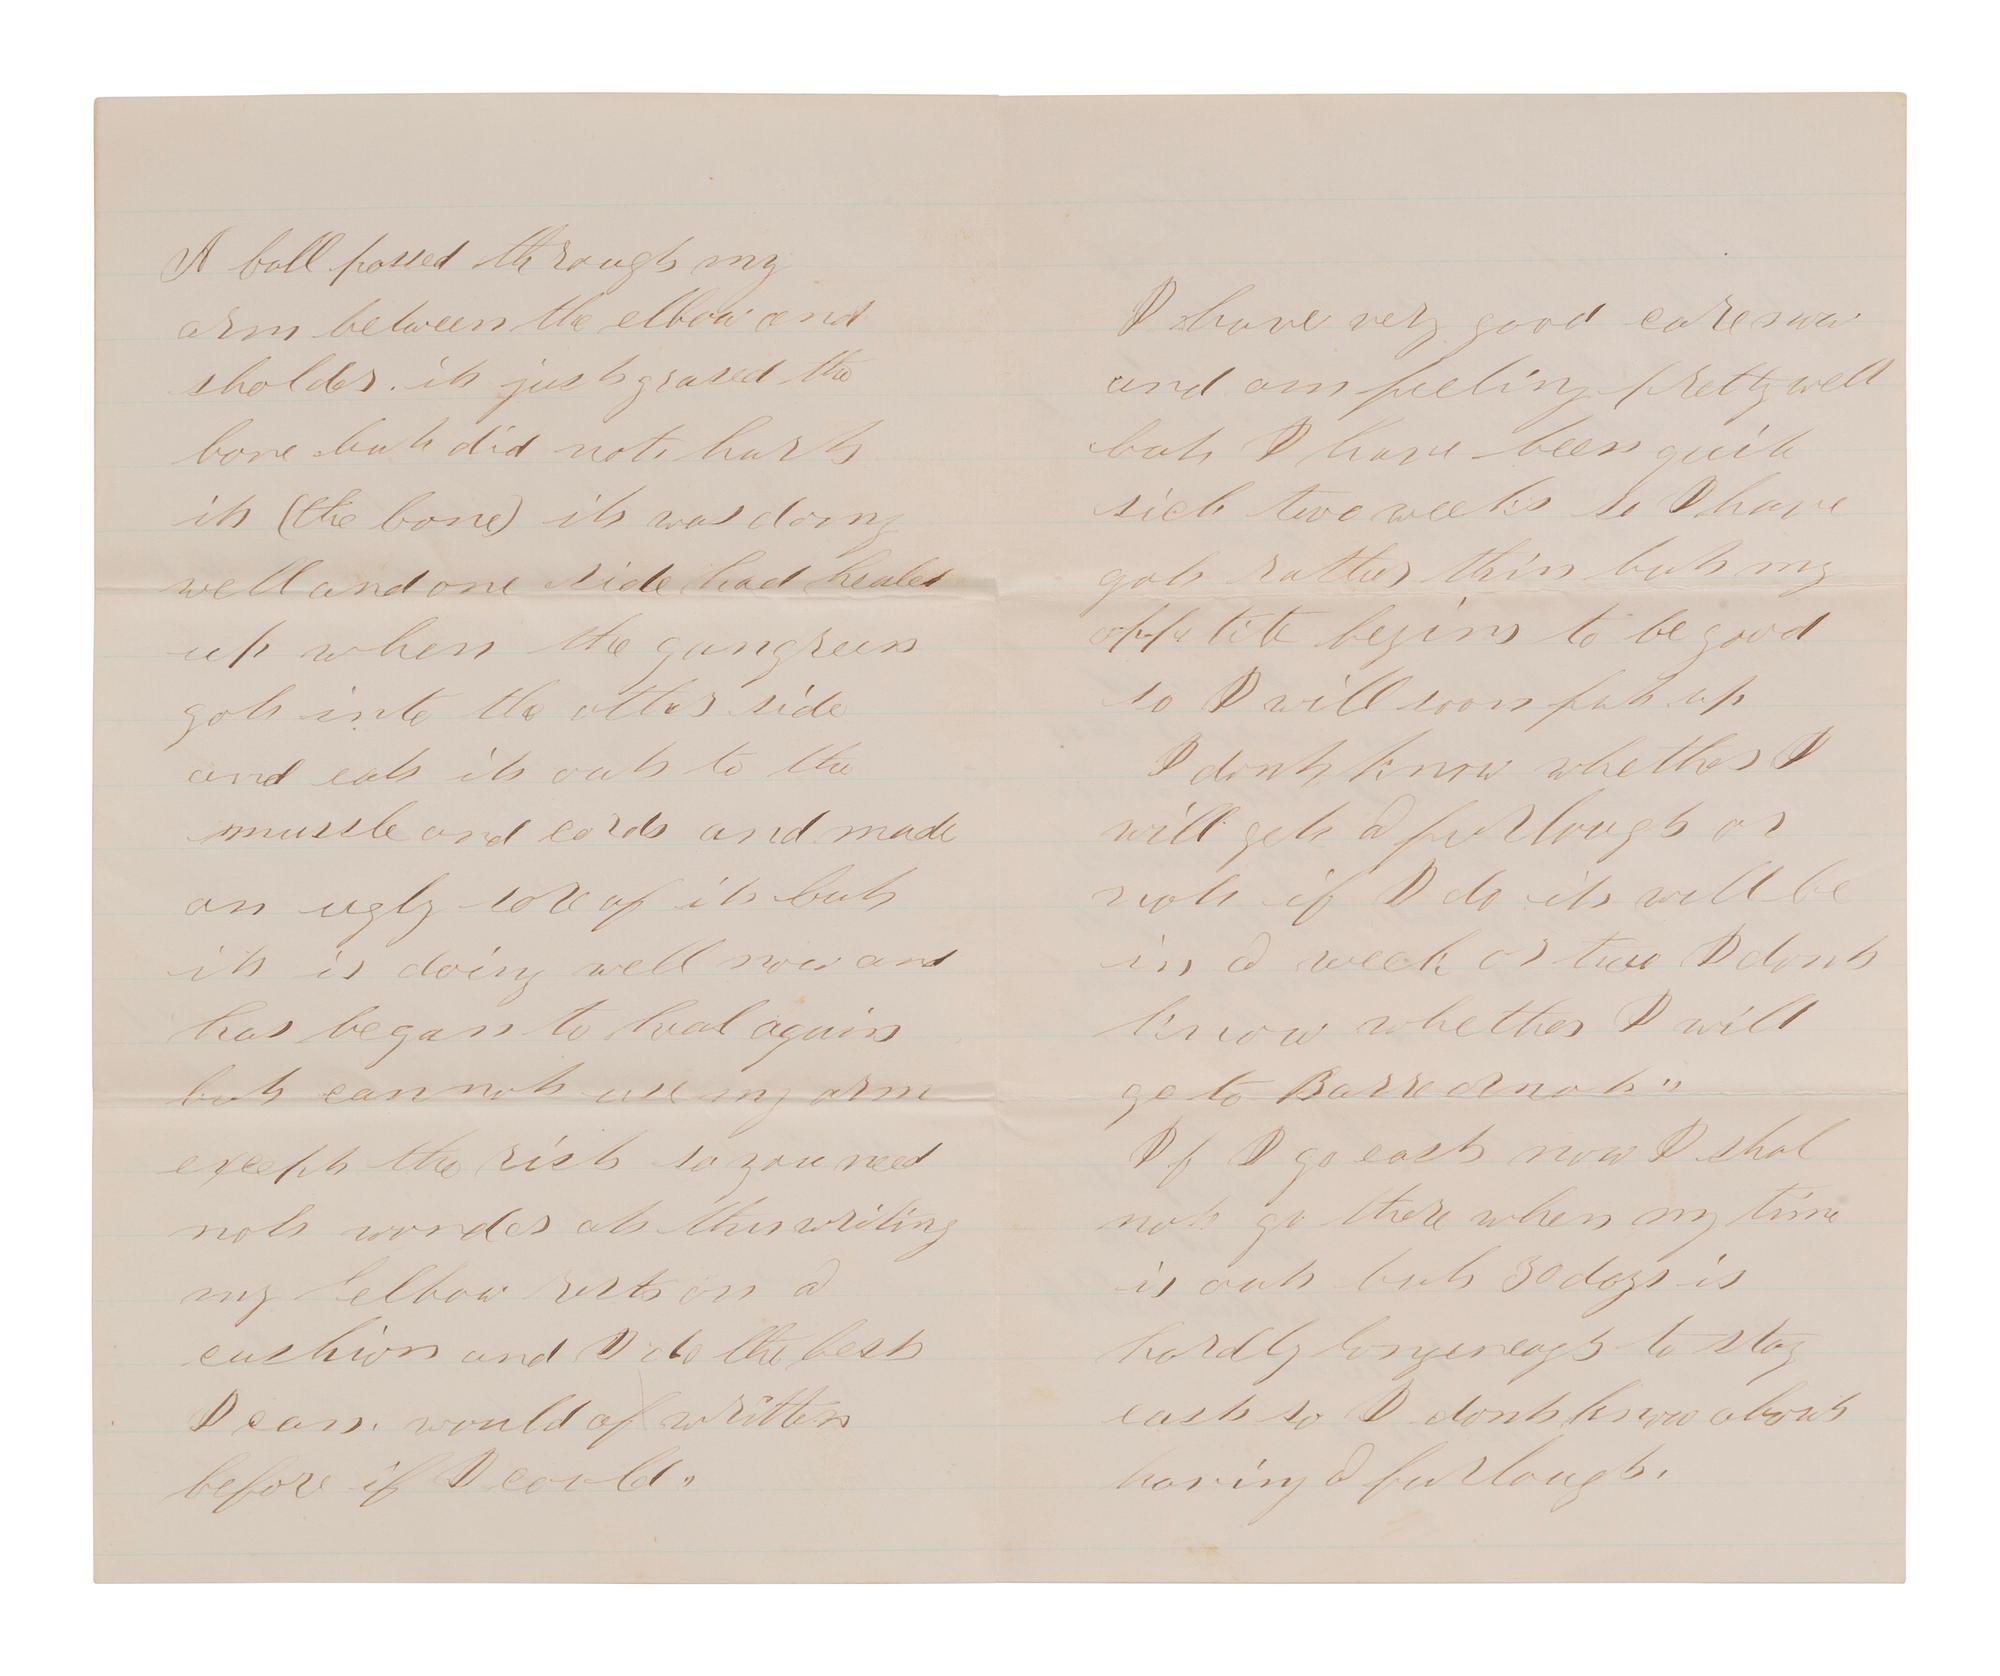 A ball passed through my
arm between the elbow and
sholder. it just grased the
bone but did not hurt
it (the bone) it was doing
well and one side had healed
up when the gangreen
got into the other side
and eat it out to the
mussle and cords and made
an ugly sore of it but
it is doing well now and
has began to heal again
but can not use my arm
except the rist so you need
not wonder at this writing
my elbow rests on a
cushion and I do the best
I can. would of written
before if I could"
I have very good care now
and am feeling pretty well
but I have been quit
sick two weeks so I have
got rather thin but my
appetite begins to be good
so I will soon fat up
I dont know whether I
will get a furlough or
not if I do it will be
in a week or two I dont
know whether I will
go to Barre or not"
If I go east now I shal
not go there when my time
is out but 30 days is
hardly long enough to stay
east so I dont know about
having a furlough.